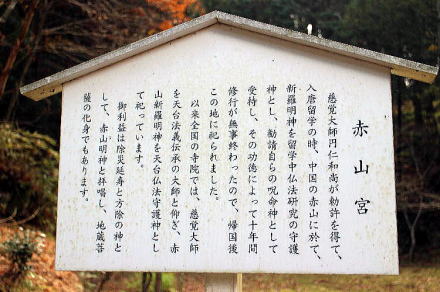 赤山宮
慈覚大師円仁和尚が勅許を得て、
入唐留学の時、中国の赤山に於て、
新羅明神を留学中仏法研究の守護
神とし、勧請自らの呪命神として
受持し、その功徳によって十年間
修行が無事終わったので、帰国後
この地に祀られました。
以来全国の寺院では、慈覚大師
を天台法義伝承の大師と仰ぎ、赤
山新羅明神を天台仏法守護神とし
て祀っています。
御利益は除災延寿と方除の神と
して、赤山明神と拝唱し、地蔵菩
薩の化身でもあります。